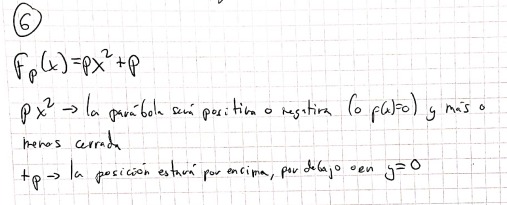 6
Fp(x)=px²+p
px² → la parábola será positiva o negativa (o f(x)=0) y más o
menos cerrada
+p → la posición estará por encima, por debajo o en y=0